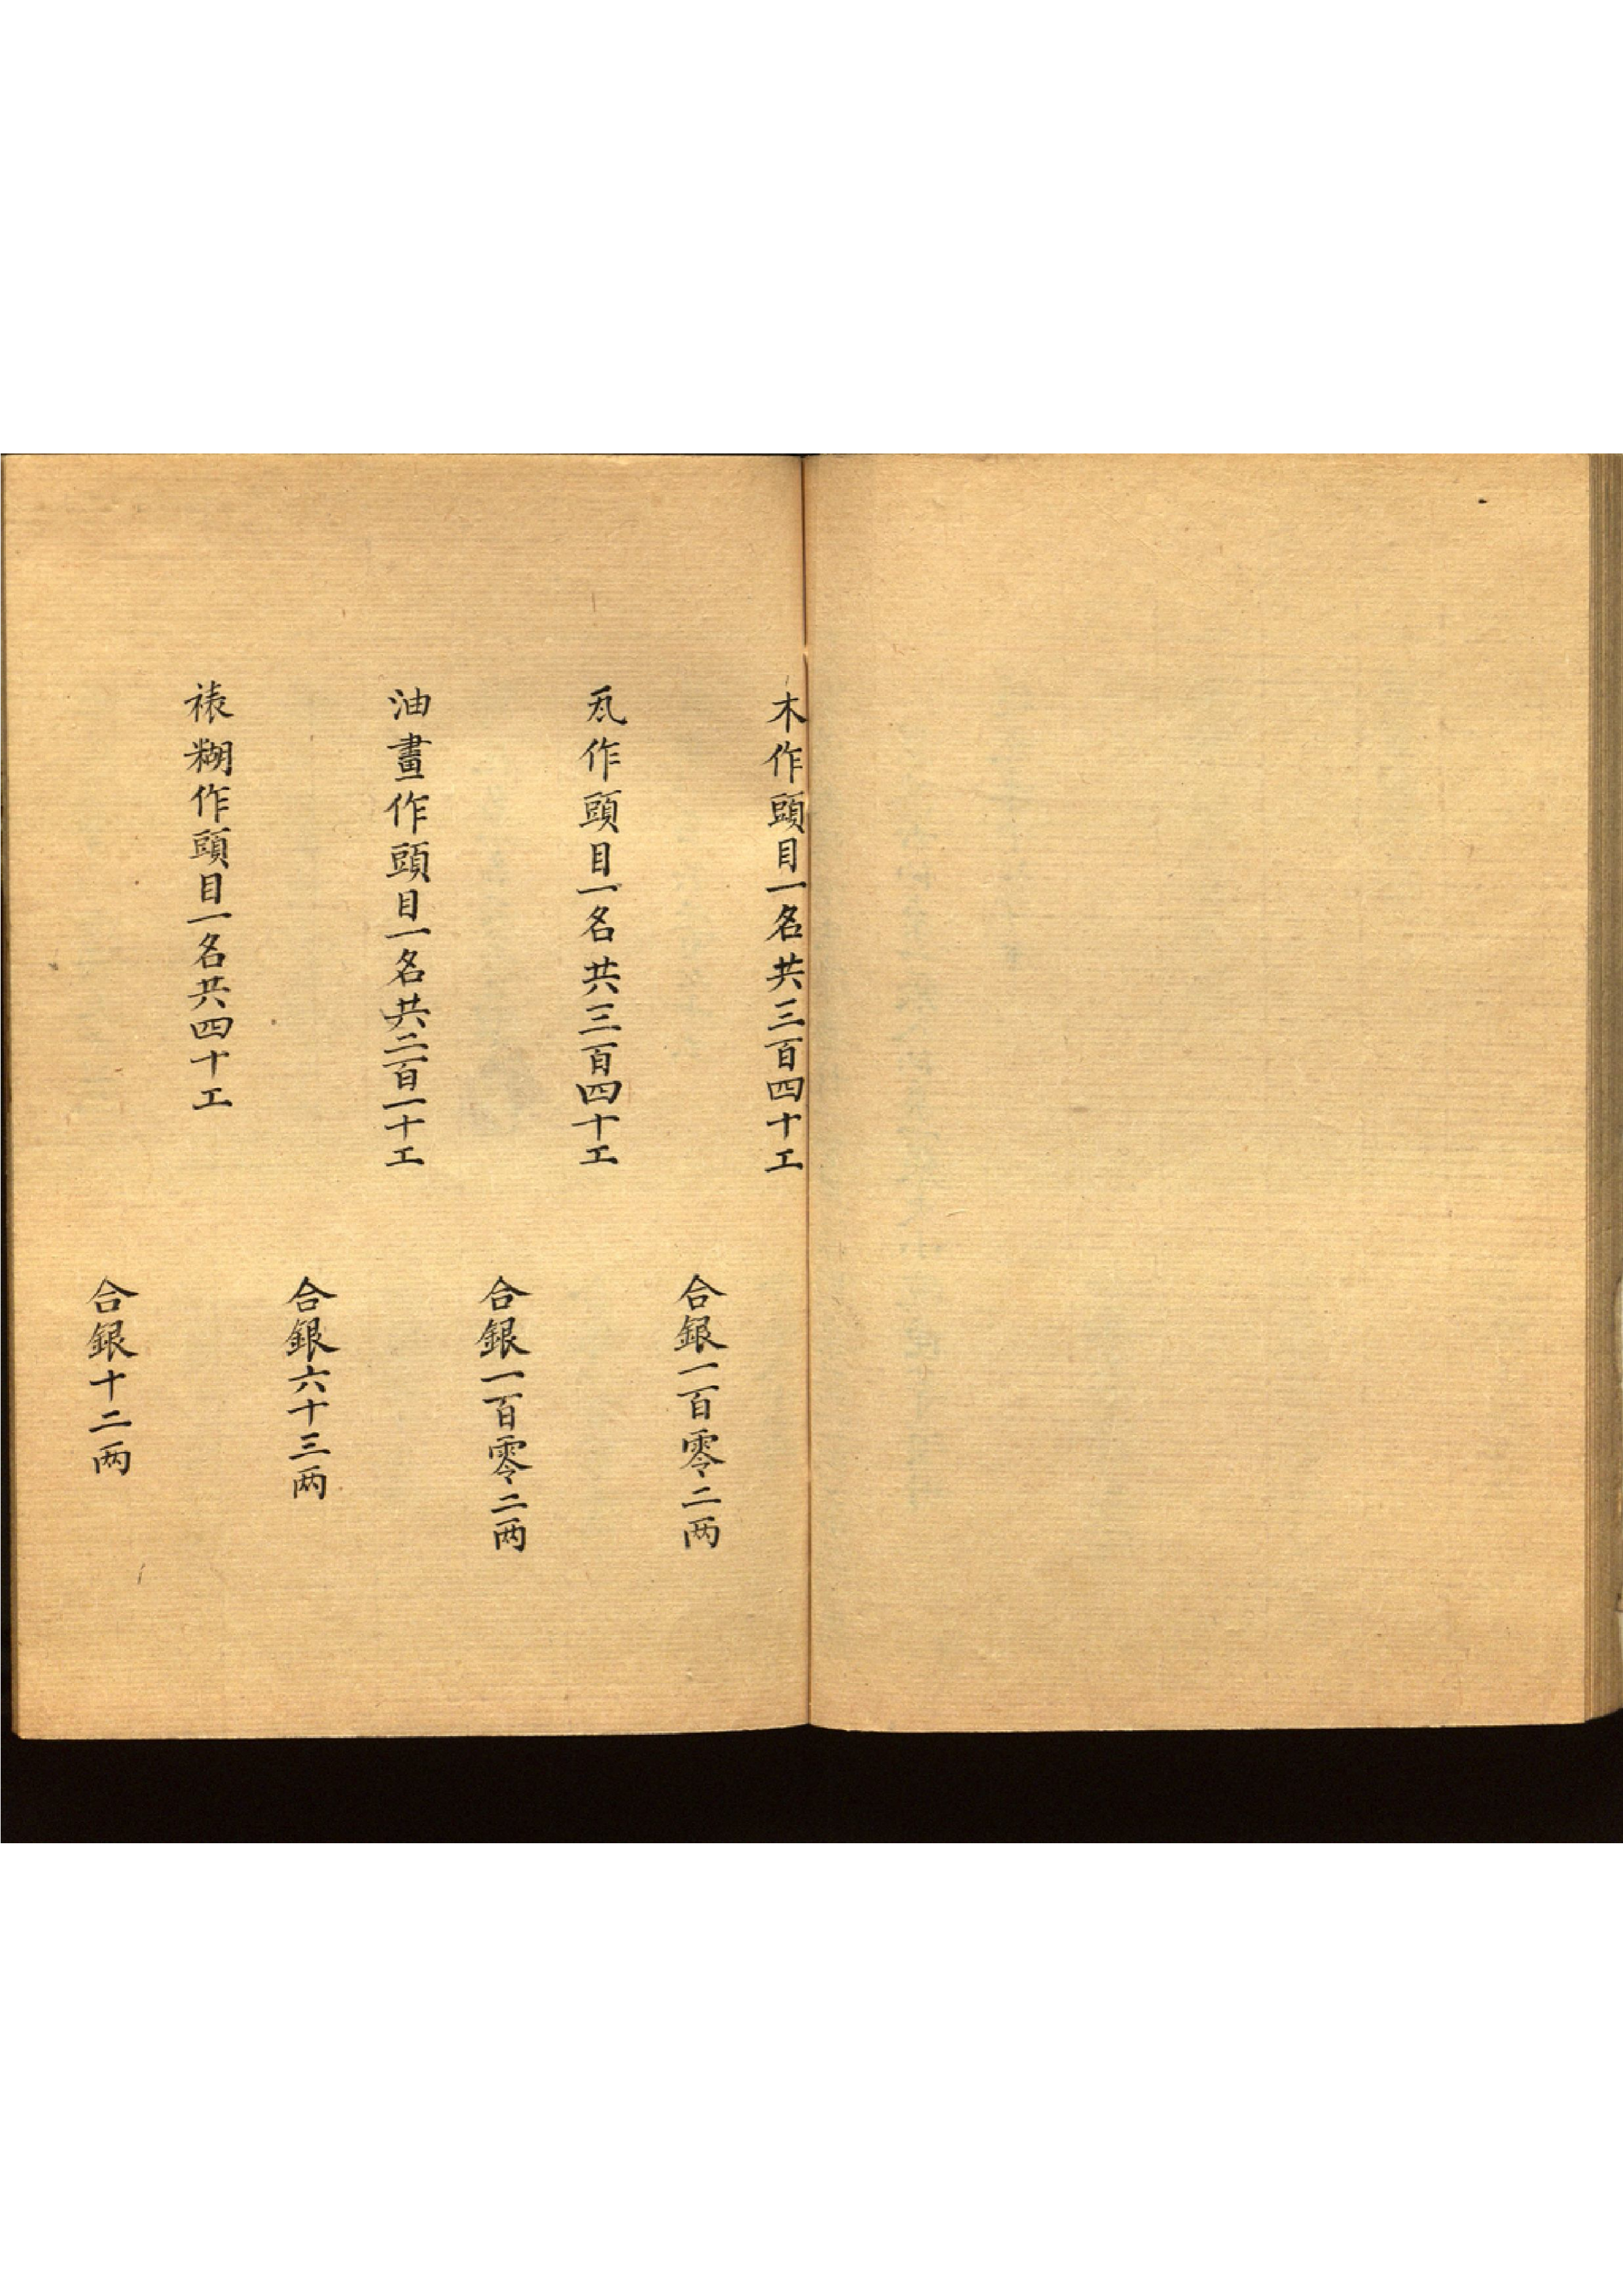 木作頭目一名共三百四十工
合銀一百零二两
瓦作頭目一名共三百四十工
合銀一百零二两
油畫作頭目一名共二百一十工
合銀六十三两
裱糊作頭目一名共四十工
合銀十二两